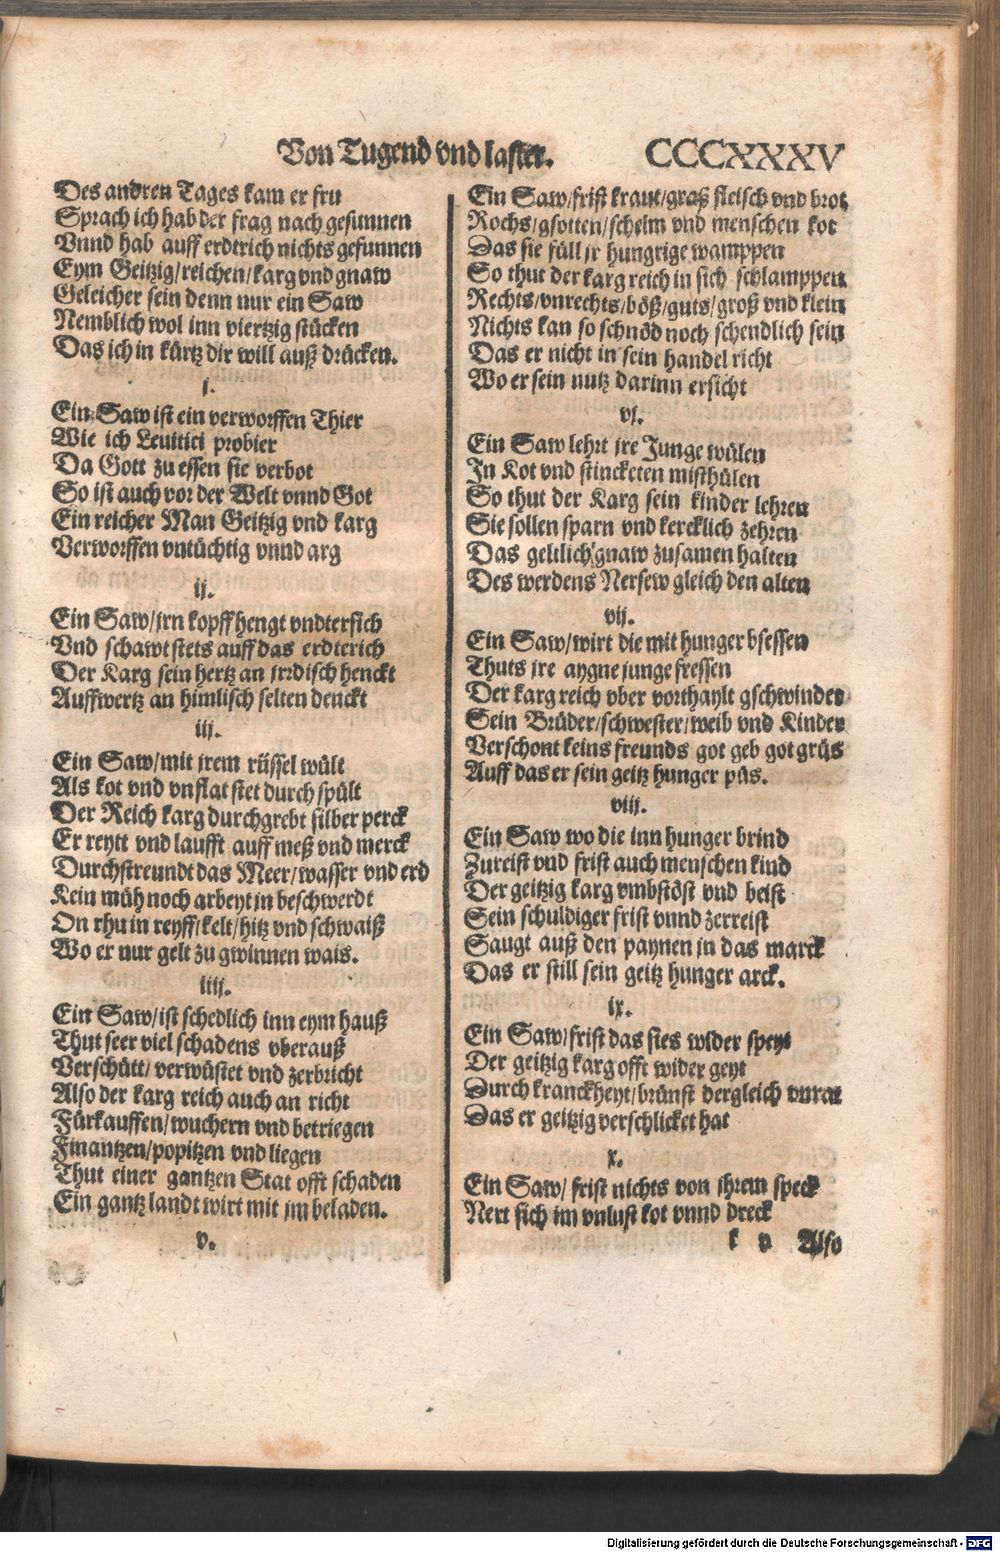 Von Tugend vnd laster. CCCXXXV
Des andren Tages kam er fru
Sprach ich hab der frag nach gesunnen
Vnnd hab auff erdtrich nichts gefunnen
Eym Geitzig/reichen/karg vnd gnaw
Geleicher sein denn nur ein Saw
Nemblich wol inn viertzig stücken
Das ich in kürtz dir will auß drücken.
j.
Ein Saw ist ein verworffen Thier
Wie ich Leuitici probier
Da Gott zu essen sie verbot
So ist auch vor der Welt vnnd Got
Ein reicher Man Geitzig vnd karg
Verworffen vntüchtig vnnd arg
ij.
Ein Saw/jrn kopff hengt vndtersich
Vnd schawt stets auff das erdterich
Der Karg sein hertz an jrrdisch henckt
Auffwertz an himlisch selten denckt
iij.
Ein Saw/mit jrem rüssel wült
Als kot vnd vnflat stet durch spült
Der Reich karg durchgrebt silber perck
Er reytt vnd laufft auff meß vnd merck
Durchstreundt das Meer/wasser vnd erd
Kein müh noch arbeyt in beschwerdt
On rhu in reyff/kelt/hitz vnd schwaiß
Wo er nur gelt zu gwinnen wais.
iiij.
Ein Saw/ist schedlich inn eym hauß
Thut seer viel schadens vberauß
Verschütt/verwüstet vnd zerbricht
Also der karg reich auch an richt
Fürkauffen/wuchern vnd betriegen
Finantzen/popitzen vnd liegen
Thut einer gantzen Stat offt schaden
Ein gantz landt wirt mit jm beladen.
v.
Ein Saw/frist kraut/graß fleisch vnd brot
Rochs/gsotten/schelm vnd menschen kot
Das sie füll jr hungrige wamppen
So thut der karg reich in sich schlamppen
Rechts/vnrechts/böß/guts/groß vnd klein
Nichts kan so schnöd noch schendlich sein
Das er nicht in sein handel richt
Wo er sein nutz darinn ersicht
vj.
Ein Saw lehrt jre Junge wülen
In Kot vnd stincketen misthülen
So thut der Karg sein kinder lehren
Sie sollen sparn vnd kercklich zehren
Das geltlich gnaw zusamen halten
Des werdens Nersew gleich den alten
vij.
Ein Saw/wirt die mit hunger bsessen
Thuts jre aygne junge fressen
Der karg reich vber vorthaylt gschwinder
Sein Brüder/schwester/weib vnd Kinder
Verschont keins freunds got geb got grüs
Auff das er sein geitz hunger püs.
viij.
Ein Saw wo die inn hunger brind
Zureist vnd frist auch menschen kind
Der geitzig karg vmbstöst vnd beist
Sein schuldiger frist vnnd zerreist
Saugt auß den paynen jn das marck
Das er still sein geitz hunger arck.
ix.
Ein Saw/frist das sies wider speyt
Der geitzig karg offt wider geyt
Durch kranckheyt/brünst dergleich vnrat
Das er geitzig verschlicket hat
x.
Ein Saw/frist nichts von ihrem speck
Nert sich im vnlust kot vnnd dreck
k ij Also
Digitalisierung gefördert durch die Deutsche Forschungsgemeinschaft - DFG